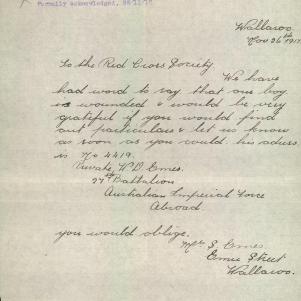 Formally acknowledged,
Wallaroo
Nov 26th 1917
To the Red Cross Society
We have
had word to say that our boy
is wounded & would be very
grateful if you would find
out particulars & let us know
as soon as you could his adress
is No 4419.
Private, W. D. Emes.
27th Battalion
Australian Imperial Force
Abroad.
you would oblige.
Mrs S Emes.
Ernie Street
Wallaroo.